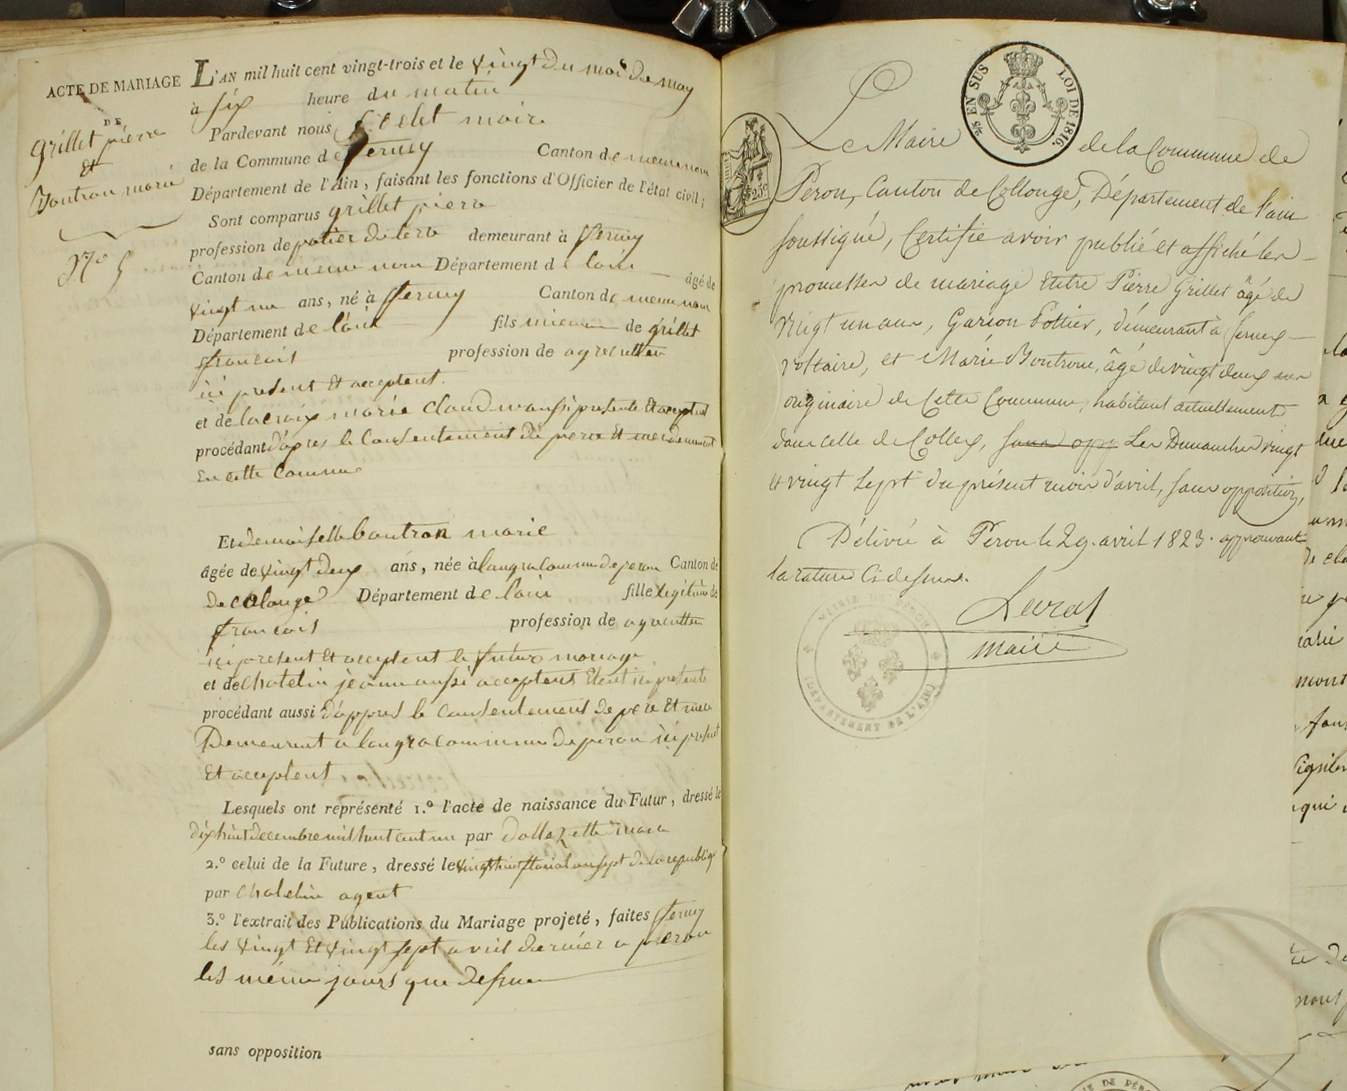 ACTE DE MARIAGE
DE
grillet pierre
et
Boutron marie
N.o 5
L'AN mil huit cent vingt-trois et le vingt du mois de may
à six heure du matin
Pardevant nous maire
de la Commune de ferney Canton de meme nom
Département de l'Ain, faisant les fonctions d'Officier de l'état civil;
Sont comparus grillet piere
profession de potier de tere demeurant à ferney
Canton de meme nom Département de lain âgé de
vingt un ans, né à fferney Canton de meme nom
Département de lain fils mineur de grillet
francois profession de agriculteur
ici present et acceptent
et de lacroix marie claud aussi presente et acceptent
procédant d'apres le Consentement de pere et mere demeurant
En cette Commune
Et demoiselle boutron marie
âgée de vingt deux ans, née à langra commune de peron Canton de
de colonge Département de lain fille legitime de
francois profession de agriculteur
ici present et acceptent le futur mariage
et de chatelin jeanne aussi acceptent Etent ici presente
procédant aussi d'appres le consentement de pere Et mere
Demeurent a langra commune de peron ici present
Et acceptent
Lesquels ont représenté 1.º l'acte de naissance du Futur, dressé le
dix huit decembre mil huit cent un par maire
2.º celui de la Future, dressé le vingt huit floreal an sept de la republique
par Chatelin agent
3.º l'extrait des Publications du Mariage projeté, faites ferney
les vingt Et vingt sept avril dernier a peron
les méme jours que desus
sans opposition
2/5 EN SUS LOI DE 1816.
25c
Le Maire de la Commune de
Peron, Canton de Collonge, Département de l'ain
soussigné, Certifie avoir publié et affiché les
promesses de mariage Entre Pierre Grillet âgé de
vingt un ans, Garson Pottier, démeurant à ferney
voltaire, et Marie Boutron, âgé de vingt deux ans
originaire de Cette Commune, habitant actuellement
dans celle de Collex, sans opp Les Dimanches vingt
et vingt sept du présent mois d'avril, sans opposition,
Délivré à Péron le 29. avril 1823. approuvant
la rature Ci dessus.
Levrat
Maire
MAIRIE DE PERON
DÉPARTEMENT DE L'AIN